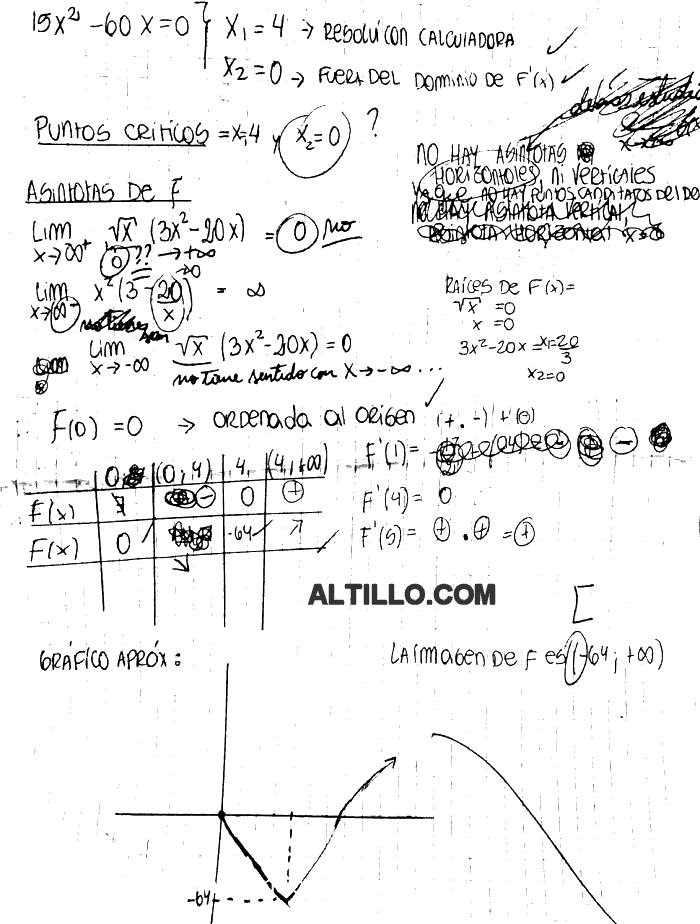 15x² - 60x = 0 } x₁ = 4 → RESOLUI CON CALCULADORA ✓
x₂ = 0 → FUERA DEL DOMINIO DE F'(x) ✓
PUNTOS CRITICOS = x=4 y x₂=0 ?
NO HAY ASINTOTAS
HORIZONTALES, ni VERTICALES
ya que NO HAY PUNTOS CANDIDATOS DEL DO
NO HAY ASINTOTA VERTICAL
ASINTOTAS DE F
Lim x→∞⁺ √x (3x² - 20x) = 0 no
0 ?? → +∞
Lim x→∞⁻ x² (3 - 20/x) = ∞
→0
Lim x→-∞ √x (3x² - 20x) = 0
no tiene sentido con x→-∞ ...
RAÍCES DE F(x) =
√x = 0
x = 0
3x² - 20x = x₁ = 20/3
x₂ = 0
F(0) = 0 → ORDENADA AL ORIGEN ✓
(+ . -) + (0)
F'(1) = -
F'(4) = 0
F'(5) = + . + = +
0 | (0, 4) | 4 | (4, +∞)
F(x) | ∄ | - | 0 | +
F(x) | 0 ✓ | ↘ | -64 ✓ | ↗
ALTILLO.COM
[
GRÁFICO APRÓX:
LA IMAGEN DE F es (-64; +∞)
-64